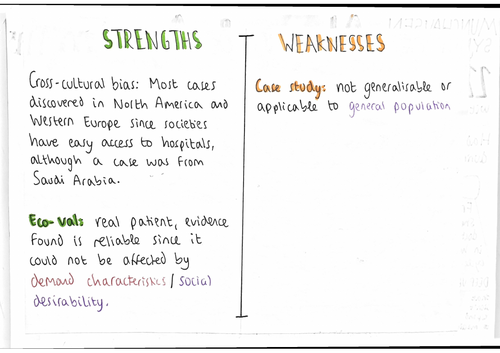 STRENGTHS
Cross-cultural bias: Most cases
discovered in North America and
Western Europe since societies
have easy access to hospitals,
although a case was from
Saudi Arabia.
Eco-val: real patient, evidence
found is reliable since it
could not be affected by
demand characteristics / social
desirability.
WEAKNESSES
Case study: not generalisable or
applicable to general population